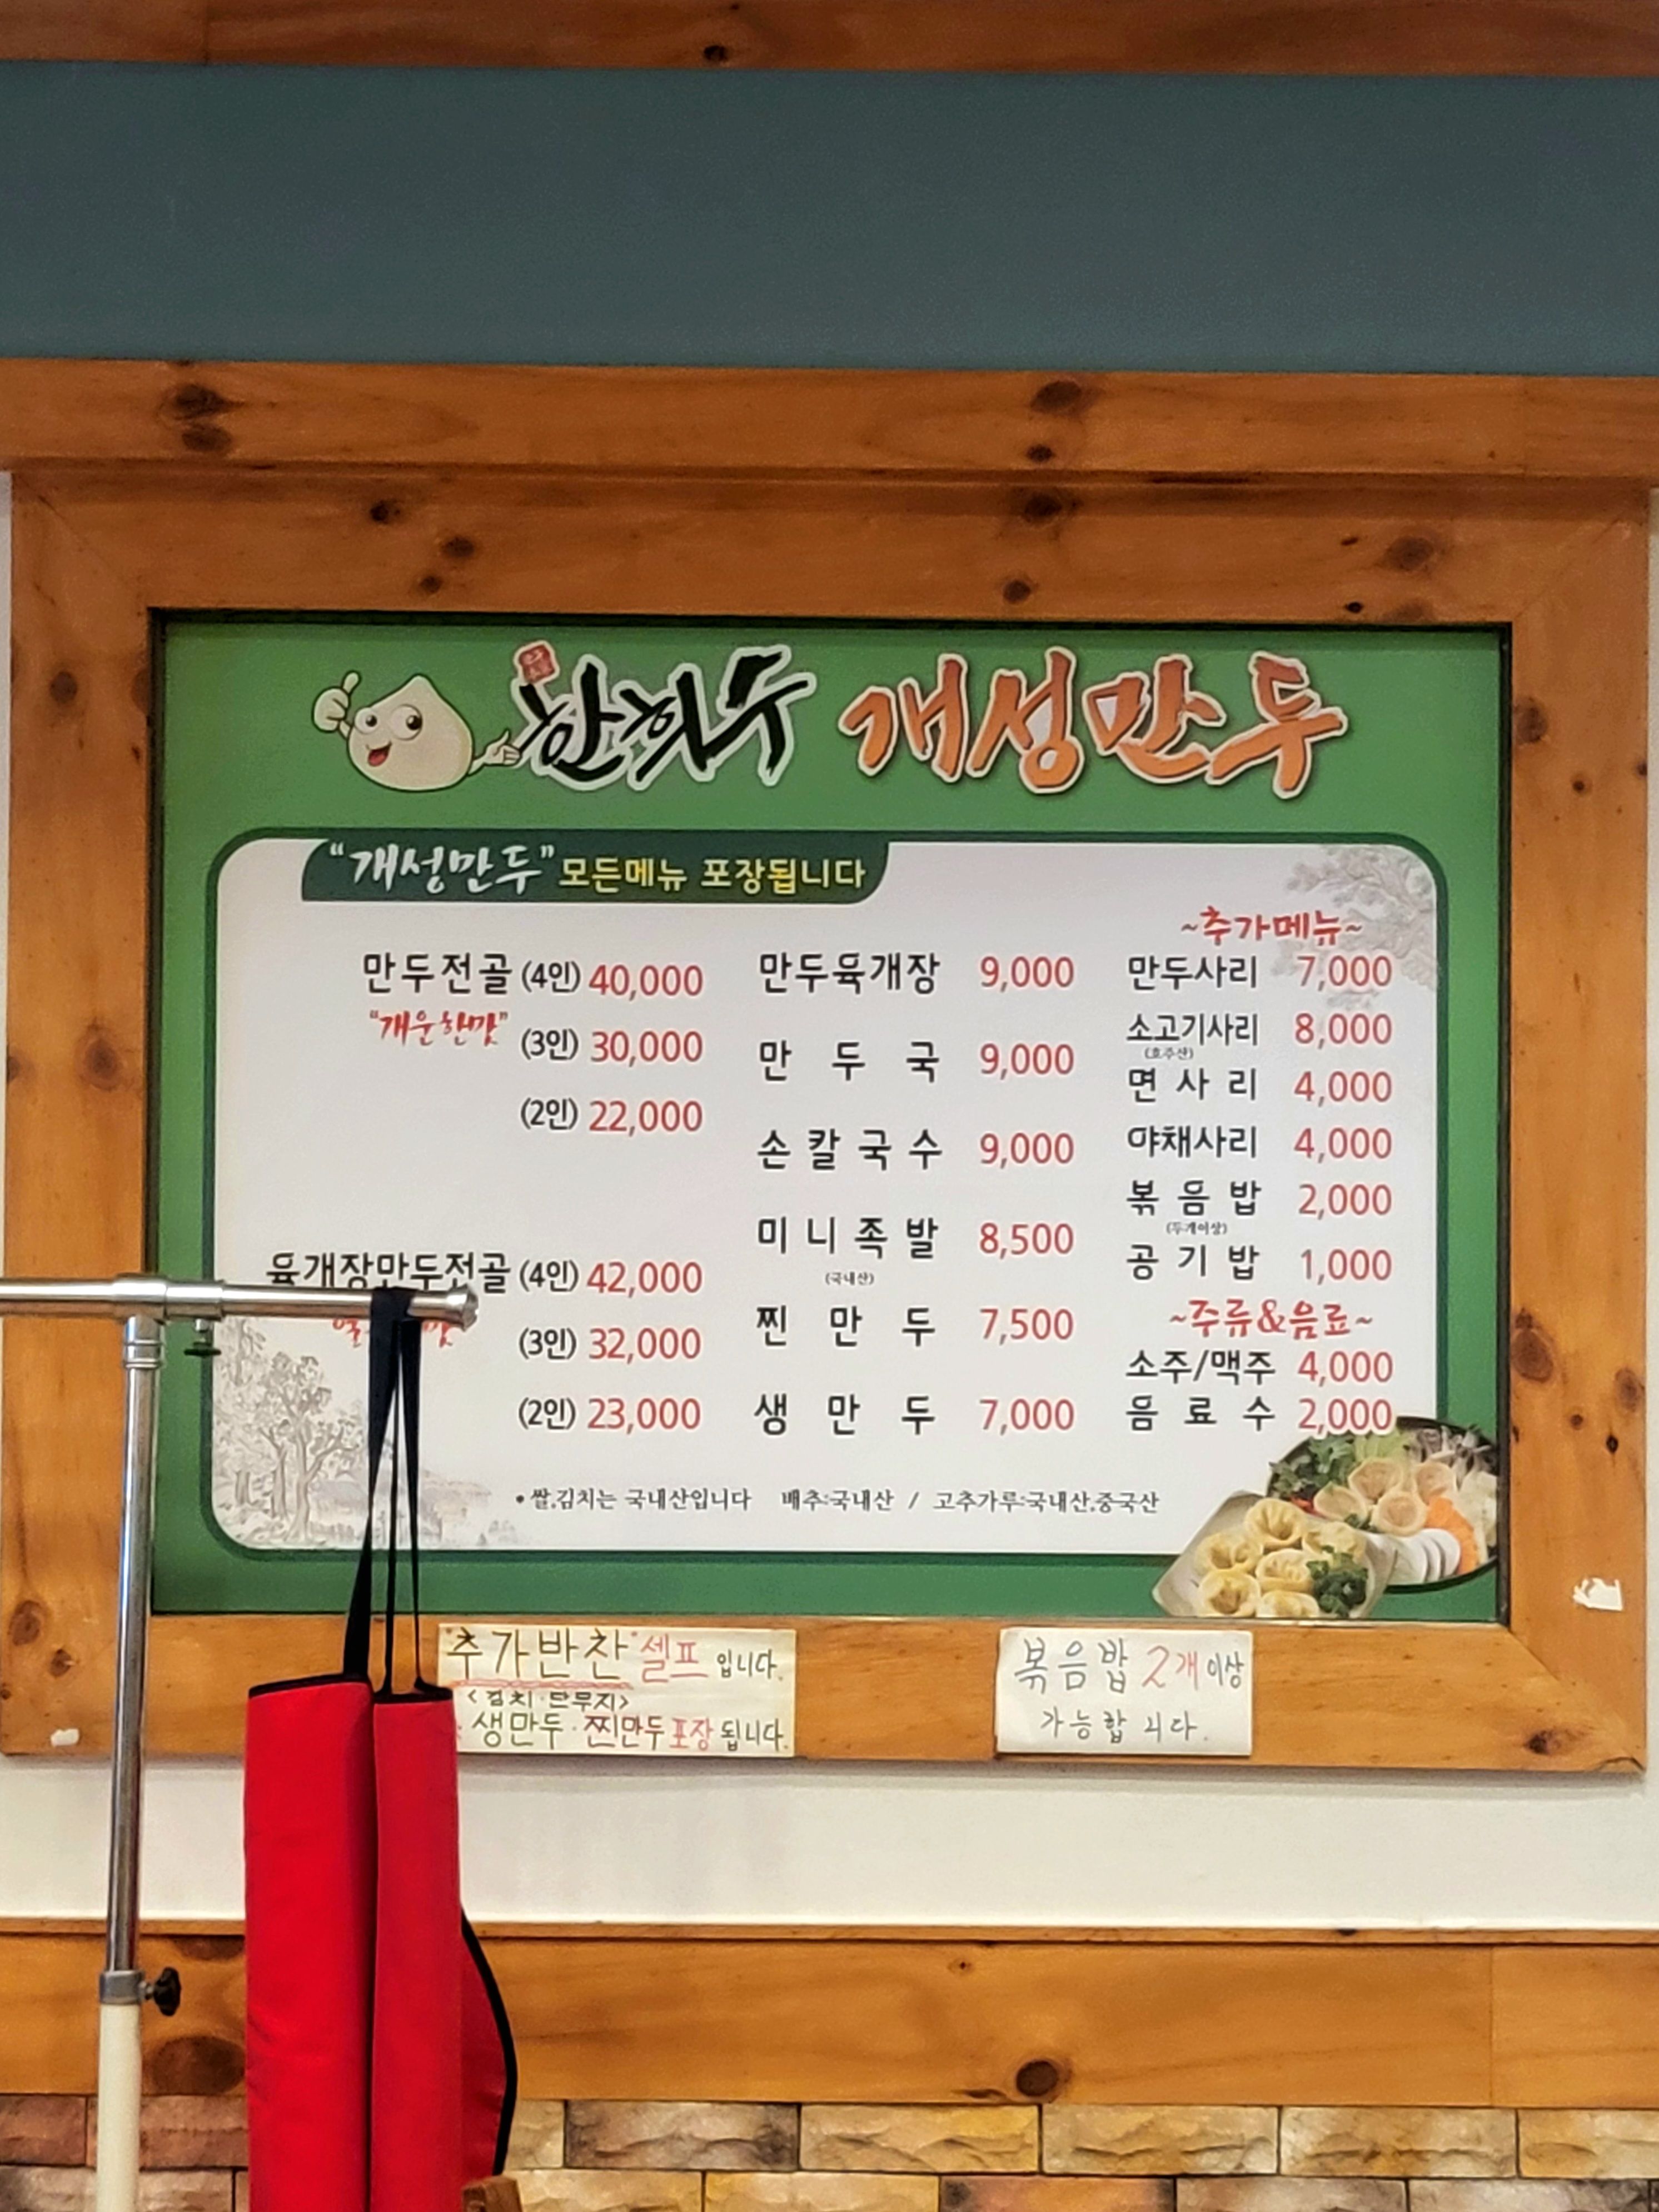 한하두 개성만두
"개성만두" 모든메뉴 포장됩니다
만두전골 (4인) 40,000
"개운한맛"
(3인) 30,000
(2인) 22,000
육개장만두전골 (4인) 42,000
(3인) 32,000
(2인) 23,000
만두육개장 9,000
만두국 9,000
손칼국수 9,000
미니족발 8,500
(국내산)
찐만두 7,500
생만두 7,000
~추가메뉴~
만두사리 7,000
소고기사리 8,000
(호주산)
면사리 4,000
야채사리 4,000
볶음밥 2,000
(두개이상)
공기밥 1,000
~주류&음료~
소주/맥주 4,000
음료수 2,000
* 쌀,김치는 국내산입니다 배추:국내산 / 고추가루:국내산,중국산
"추가반찬" 셀프 입니다.
<김치·단무지>
생만두·찐만두 포장 됩니다.
볶음밥 2개 이상
가능합니다.